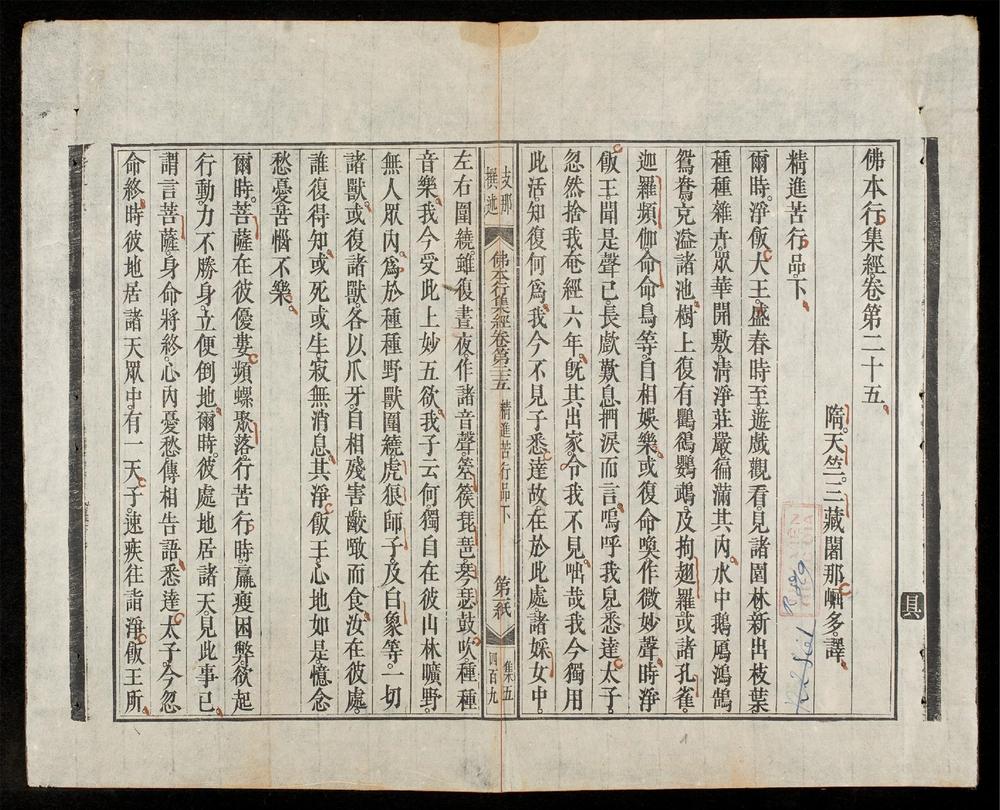 佛本行集經卷第二十五
隋。天竺。三藏闍那崛多。譯
精進苦行品。下
爾時。淨飯大王。盛春時至。遊戲觀看。見諸園林。新出枝葉。
種種雜卉。眾華開敷。清淨莊嚴。徧滿其內。水中鵝鴈鴻鵠
鴛鴦。充溢諸池。樹上復有鸜鵒鸚鵡。及拘翅羅。或諸孔雀。
迦羅頻伽。命命鳥等。自相娛樂。或復命喚。作微妙聲。時淨
飯王。聞是聲已。長歔歎息。捫淚而言。嗚呼我兒悉達太子。
忽然捨我。奄經六年。旣其出家。令我不見。咄哉我今獨用
此活。知復何爲。我今不見子悉達故。在於此處。諸婇女中。
左右圍繞。雖復晝夜。作諸音聲。箜篌琵琶。琴瑟鼓吹。種種
音樂。我今受此上妙五欲。我子云何。獨自在彼山林曠野。
無人眾內。爲於種種野獸圍繞。虎狼師子。及白象等。一切
諸獸。或復諸獸。各以爪牙。自相殘害。齩噉而食。汝在彼處。
誰復得知。或死或生。寂無消息。其淨飯王。心地如是。憶念
愁憂。苦惱不樂。
爾時。菩薩在彼優婁頻螺聚落。行苦行時。羸瘦困弊。欲起
行動。力不勝身。立便倒地。爾時。彼處地居諸天。見此事已。
謂言菩薩。身命將終。心內憂愁。傳相告語。悉達太子。今忽
命終。時彼地居諸天眾中。有一天子。速疾往詣淨飯王所。
支那撰述
佛本行集經卷第二十五
精進苦行品下
第一紙
集五
四百九